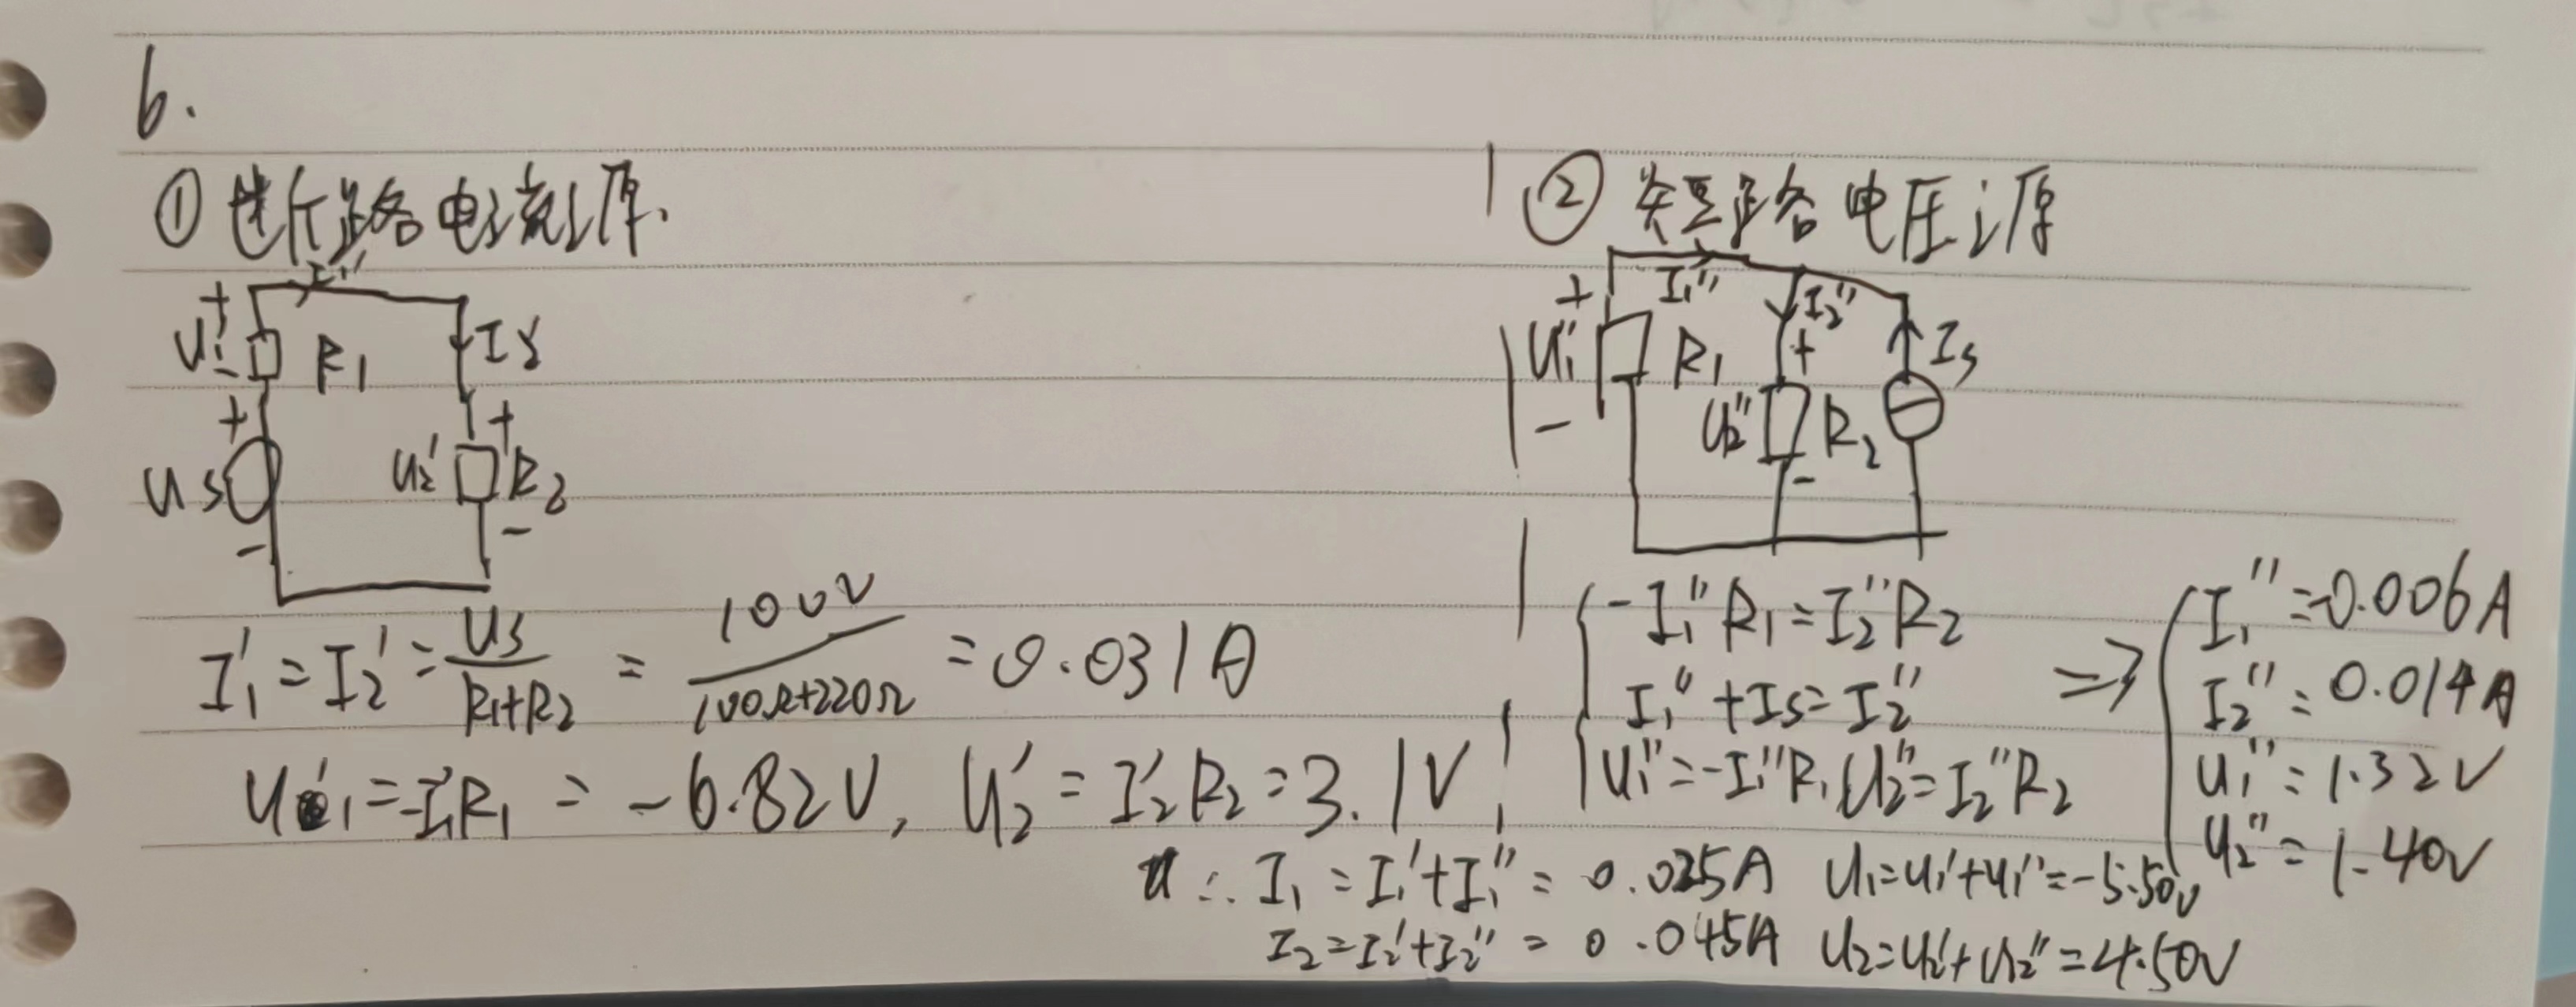 6.
① 断路电流源.
I₁'
+
U₁'
-
R₁
I₂'
+
Us
-
+
U₂'
R₂
-
I₁'=I₂'=Us/(R₁+R₂)=100V/(100Ω+220Ω)=0.031A
U₁'=-I₁'R₁=-6.82V, U₂'=I₂'R₂=3.1V
② 短路电压源
+
I₁''
I₂''
U₁''
R₁
+
Is
-
U₂''
R₂
-
-I₁''R₁=I₂''R₂
I₁''+Is=I₂''
U₁''=-I₁''R₁ U₂''=I₂''R₂
⇒
I₁''=-0.006A
I₂''=0.014A
U₁''=1.32V
U₂''=1.40V
∴ I₁=I₁'+I₁''=0.025A U₁=U₁'+U₁''=-5.50V
I₂=I₂'+I₂''=0.045A U₂=U₂'+U₂''=4.50V